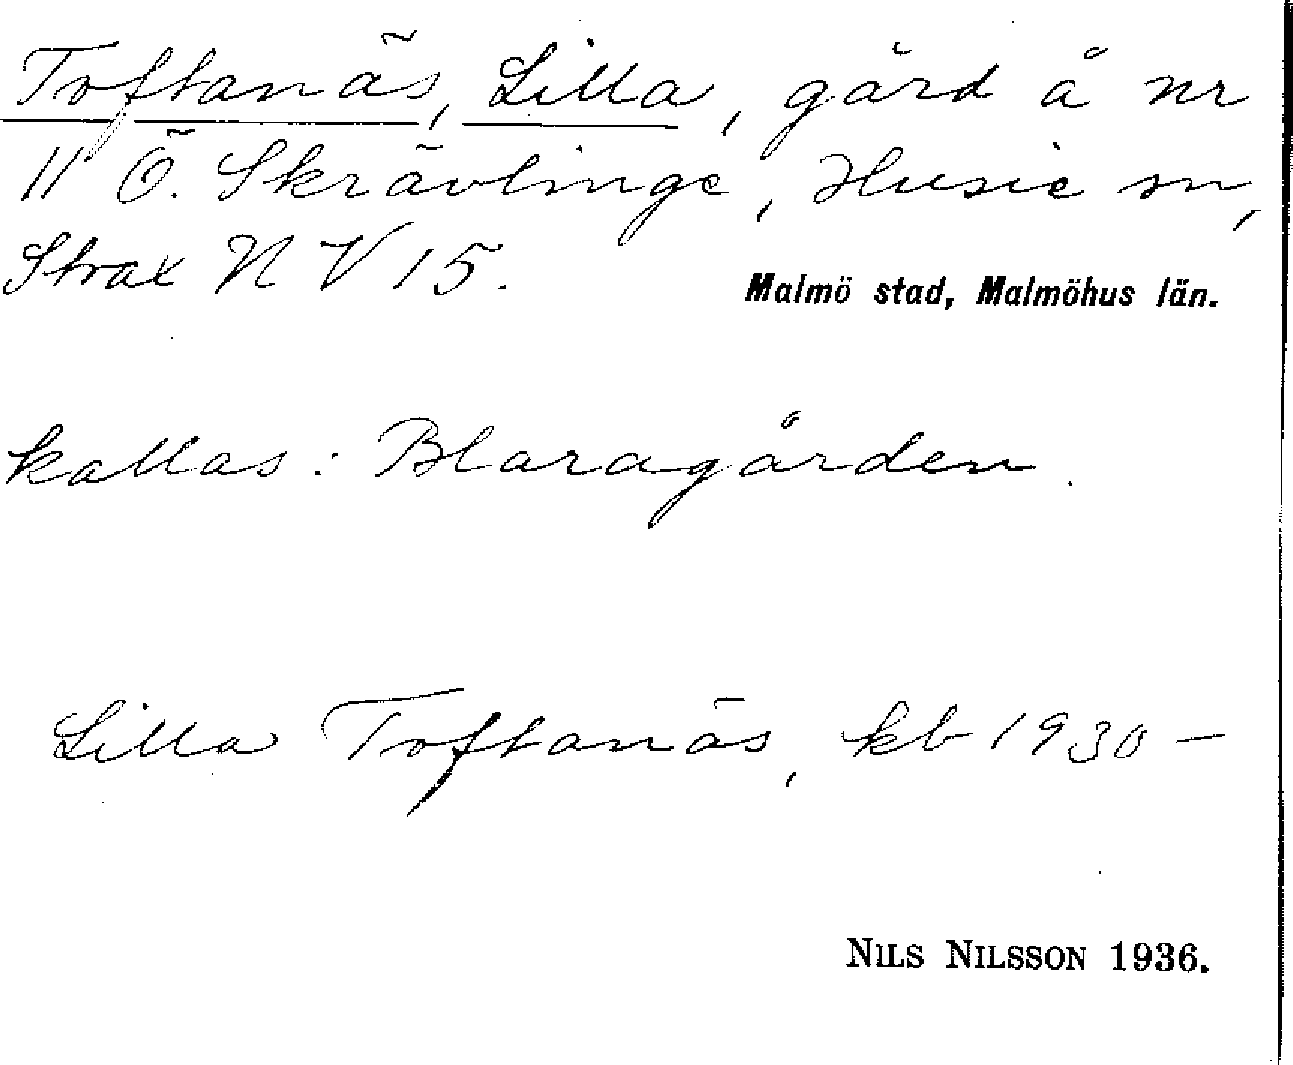 Toftanäs, Lilla, gård å nr
11 Ö. Skrävlinge, Husie sn,
Strax N V 15.
Malmö stad, Malmöhus län.
kallas: Blaragården.
Lilla Toftanäs, kb 1930 —
NILS NILSSON 1936.